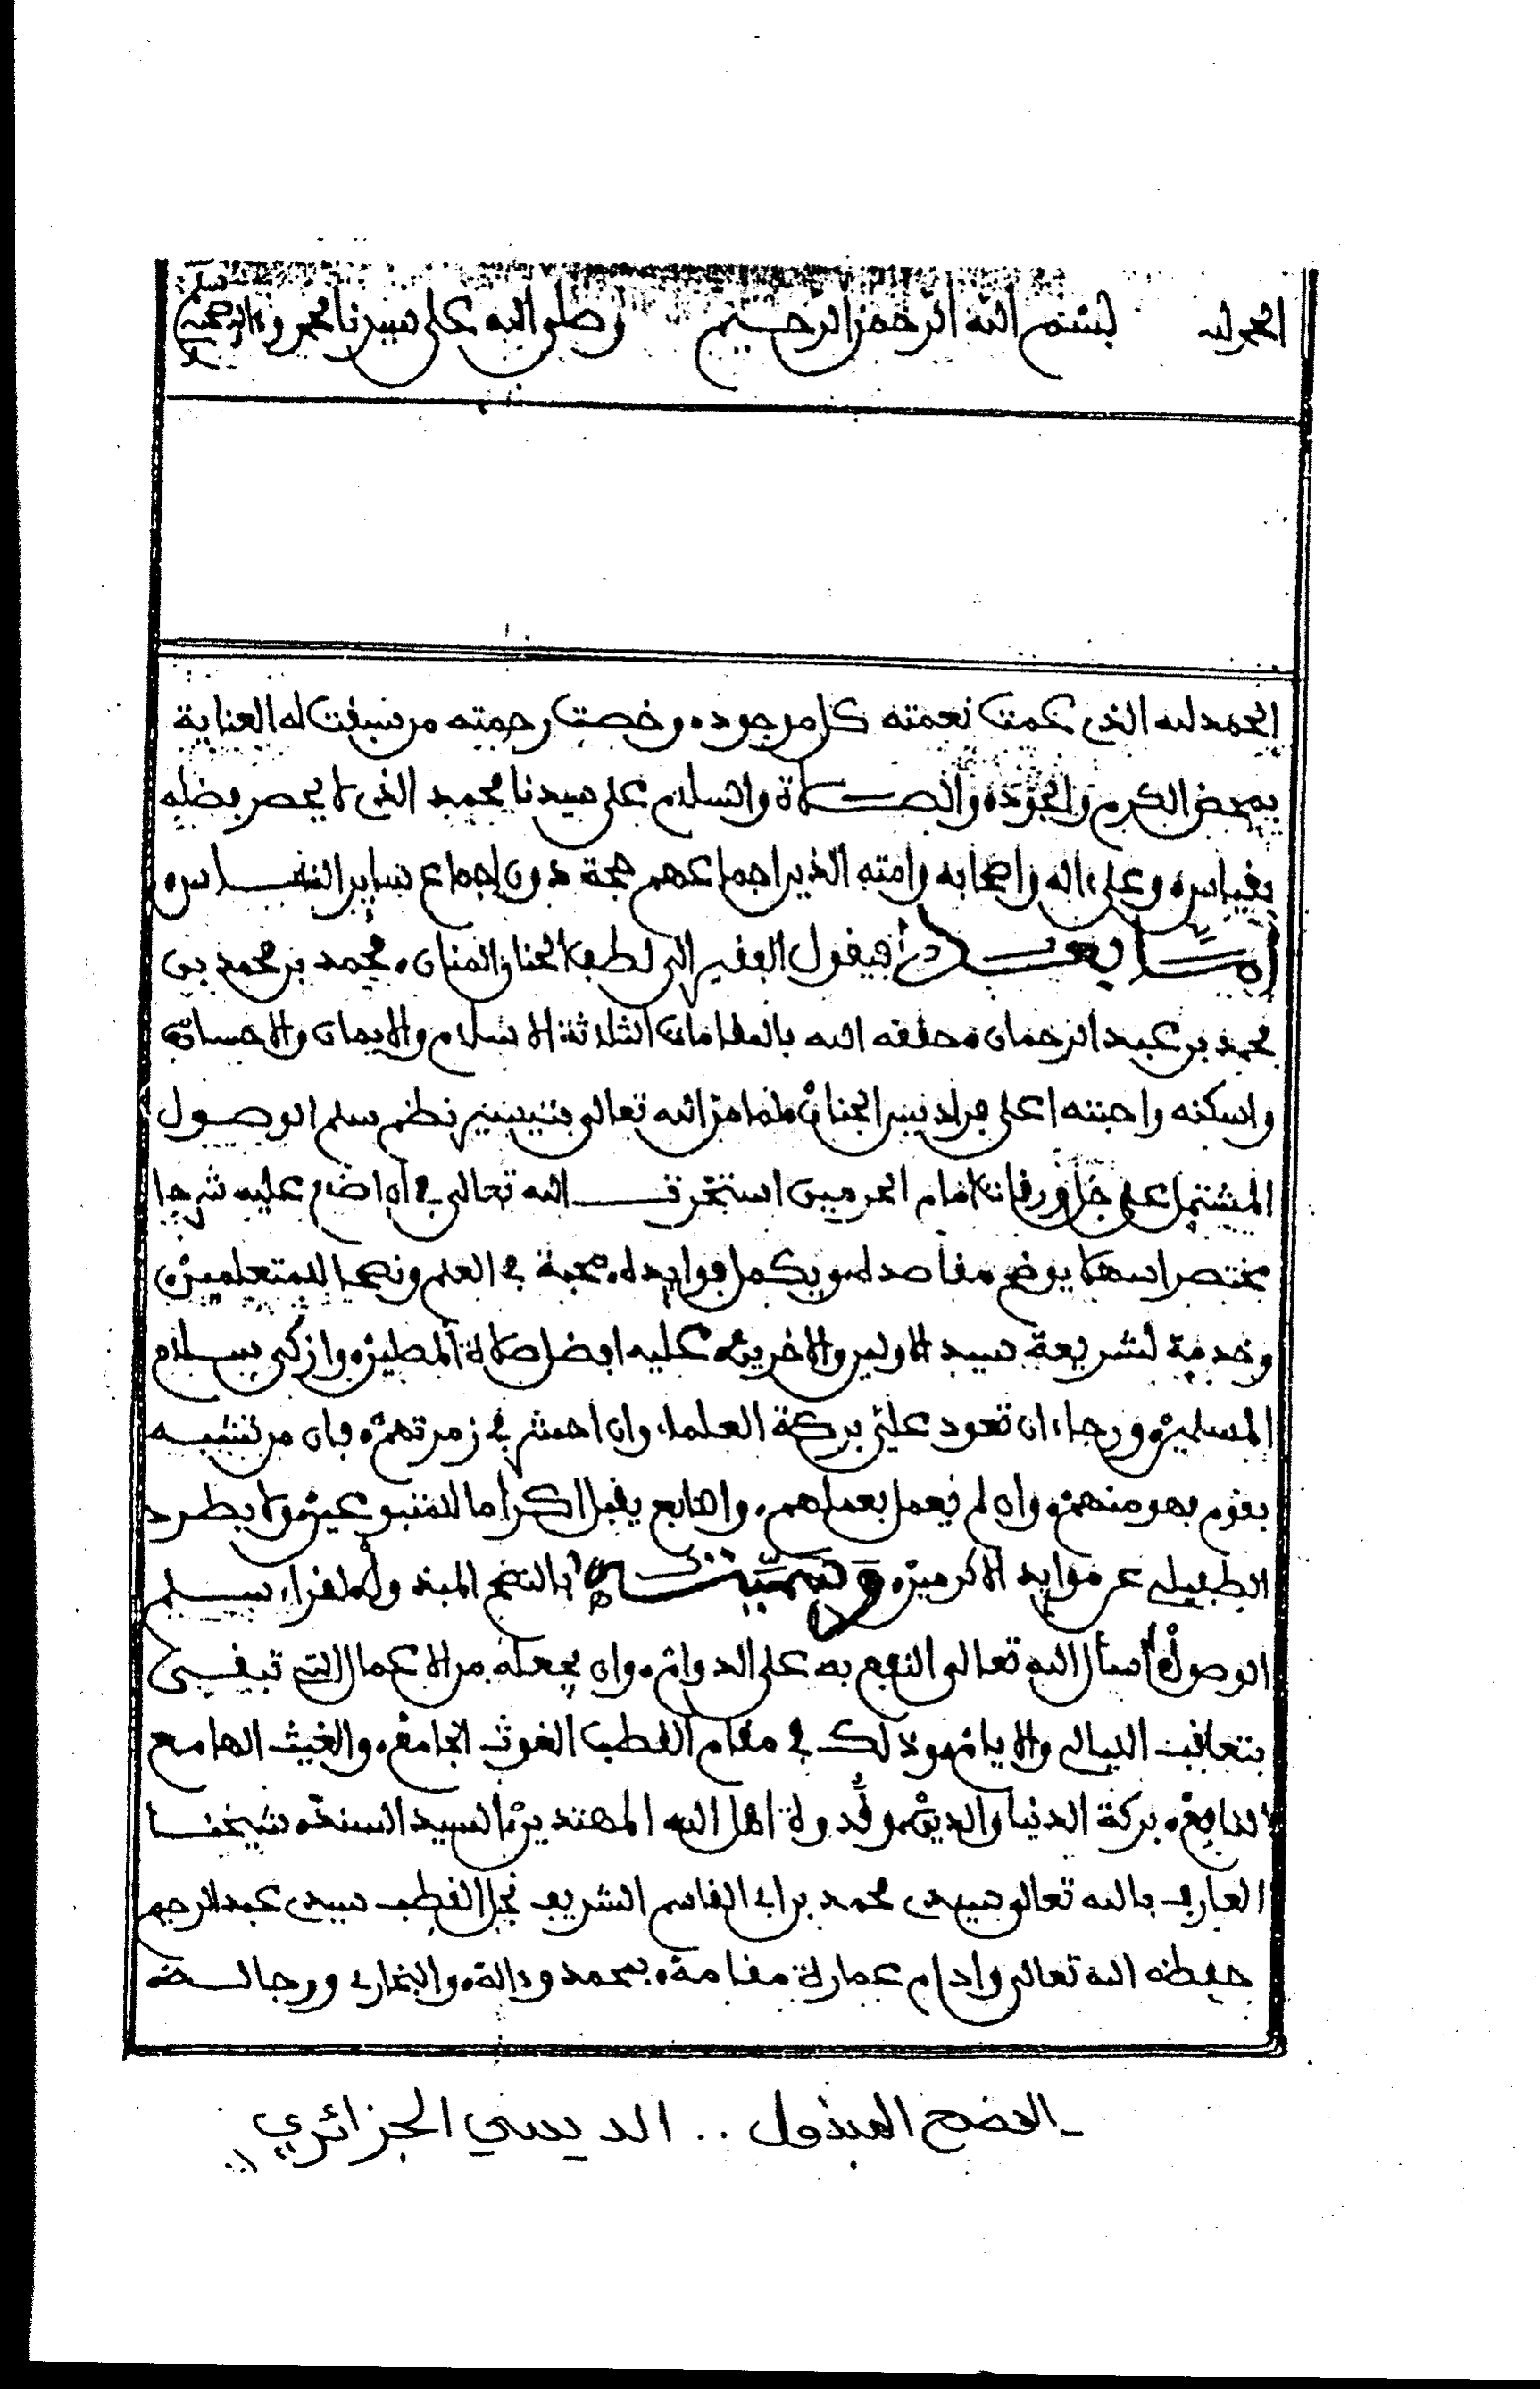 الحمد لله بسم الله الرحمن الرحيم وصلى الله على سيدنا محمد وءاله وصحبه وسلم
الحمد لله الذي عمت نعمته كل موجود، وخصت رحمته من سبقت له العناية
بمحض الكرم والجود، والصلاة والسلام على سيدنا محمد الذي لا يحصر فضله
بقياس، وعلى ءاله وأصحابه وأمته الذين اجماعهم حجة دون إجماع سائر الناس،
أما بعد فيقول الفقير إلى لطف الحنان المنان، محمد بن محمد بن
محمد بن عبد الرحمان، حققه الله بالمقامات الثلاثة الاسلام والايمان والاحسان،
واسكنه واحبته اعلى فراديس الجنان، لما من الله تعالى بتبييض نظم سلم الوصول
المشتمل على جل ورقات امام الحرمين استخرت الله تعالى في أن اضع عليه شرحا
مختصرا سهلا يوضح مقاصده، ويكمل فوايده، محبة في العلم ونصحا للمتعلمين،
وخدمة لشريعة سيد الاولين والاخرين، عليه افضل صلاة المصلين، وازكى سلام
المسلمين، ورجاء ان تعود علي بركة العلماء، وان احشر في زمرتهم، فان من تشبه
بقوم فهو منهم، وان لم يعمل بعملهم، والتابع يقبل اكراما للمتبوعين، ولا يطرد
الطفيلي عن موايد الاكرمين، وسميته بالنصح المبذول لقراء سلم
الوصول، أسأل الله تعالى النفع به على الدوام، وان يجعله من الاعمال التي تبقى
بتعاقب الليالي والايام، وذلك في مقام القطب الغوث الجامع، والغيث الهامع
النافع، بركة الدنيا والدين، وقدوة اهل الله المهتدين، السيد السند، شيخنا
العارف بالله تعالى سيدي محمد بن ابى القاسم الشريف نجل القطب سيدي عبد الرحيم
حفظه الله تعالى وادام عمارة مقامه، بمحمد وءاله، والبخاري ورجاله،
ـ النصح المبذول .. الديسي الجزائري